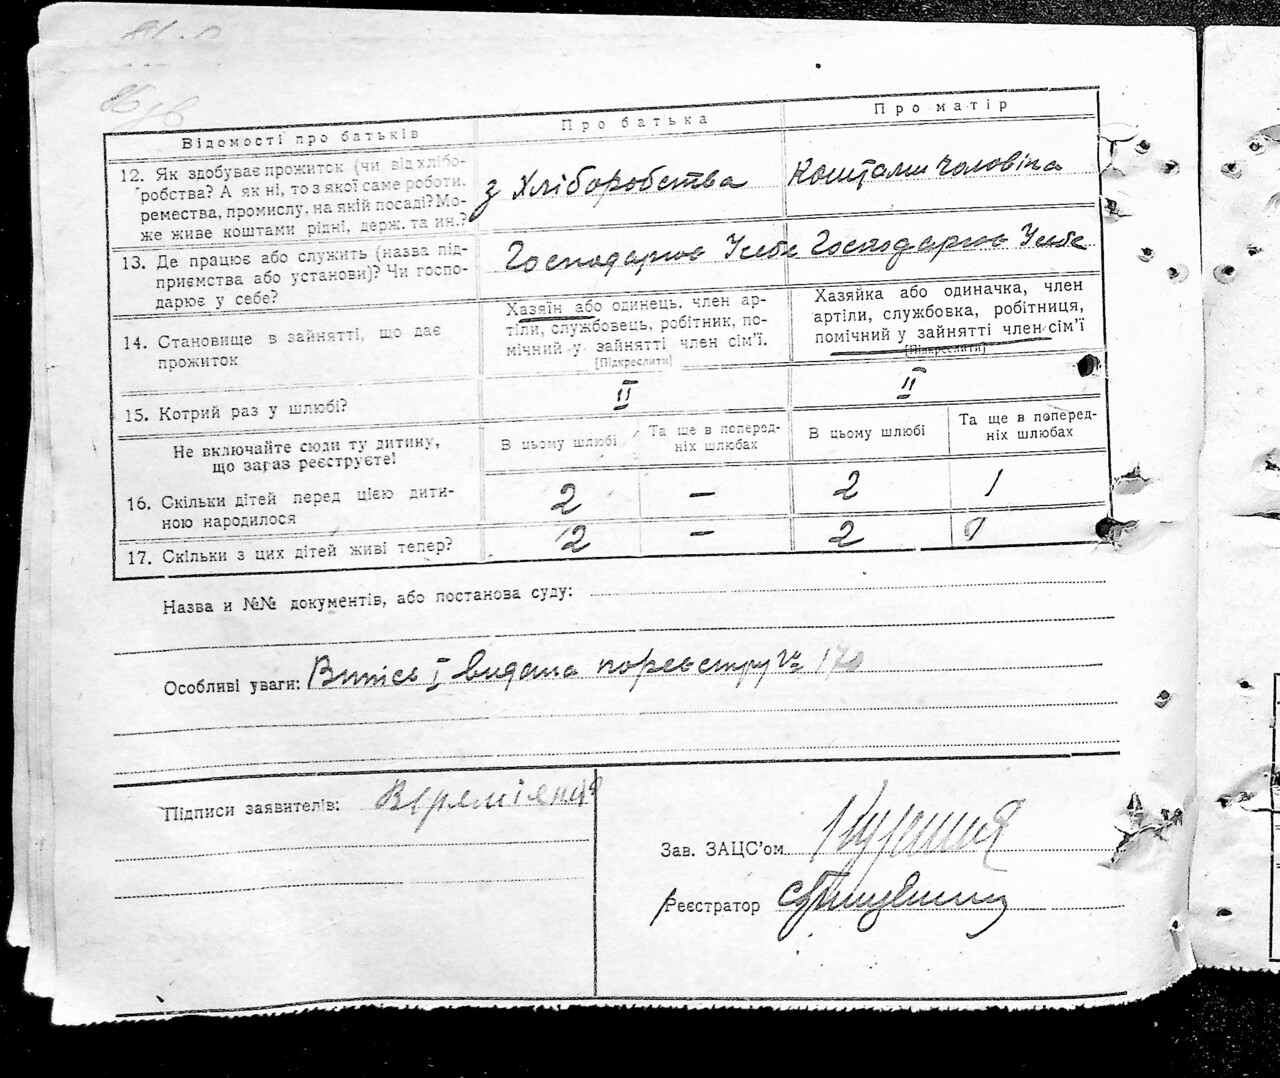 Відомості про батьків
Про батька
Про матір
12. Як здобуває прожиток (чи від хлібо-
робства? А як ні, то з якої саме роботи,
ремества, промислу, на якій посаді? Мо-
же живе коштами рідні, держ. та ин.?
з Хліборобства
Коштами чоловіка
13. Де працює або служить (назва під-
приємства або установи)? Чи госпо-
дарює у себе?
Господарює У себе
Господарює У себе
14. Становище в зайнятті, що дає
прожиток
Хазяїн або одинець, член ар-
тіли, службовець, робітник, по-
мічний у зайнятті член сім'ї.
[Підкреслити]
Хазяйка або одиначка, член
артіли, службовка, робітниця,
помічний у зайнятті член сім'ї
[Підкреслити]
15. Котрий раз у шлюбі?
II
II
Не включайте сюди ту дитину,
що зараз реєструєте!
В цьому шлюбі
Та ще в поперед-
ніх шлюбах
В цьому шлюбі
Та ще в поперед-
ніх шлюбах
16. Скільки дітей перед цією дити-
ною народилося
2
—
2
1
17. Скільки з цих дітей живі тепер?
2
—
2
Назва и №№ документів, або постанова суду:
Особливі уваги: Випись I видана по реєстру № 170
Підписи заявителів:
Зав. ЗАЦС'ом
Реєстратор